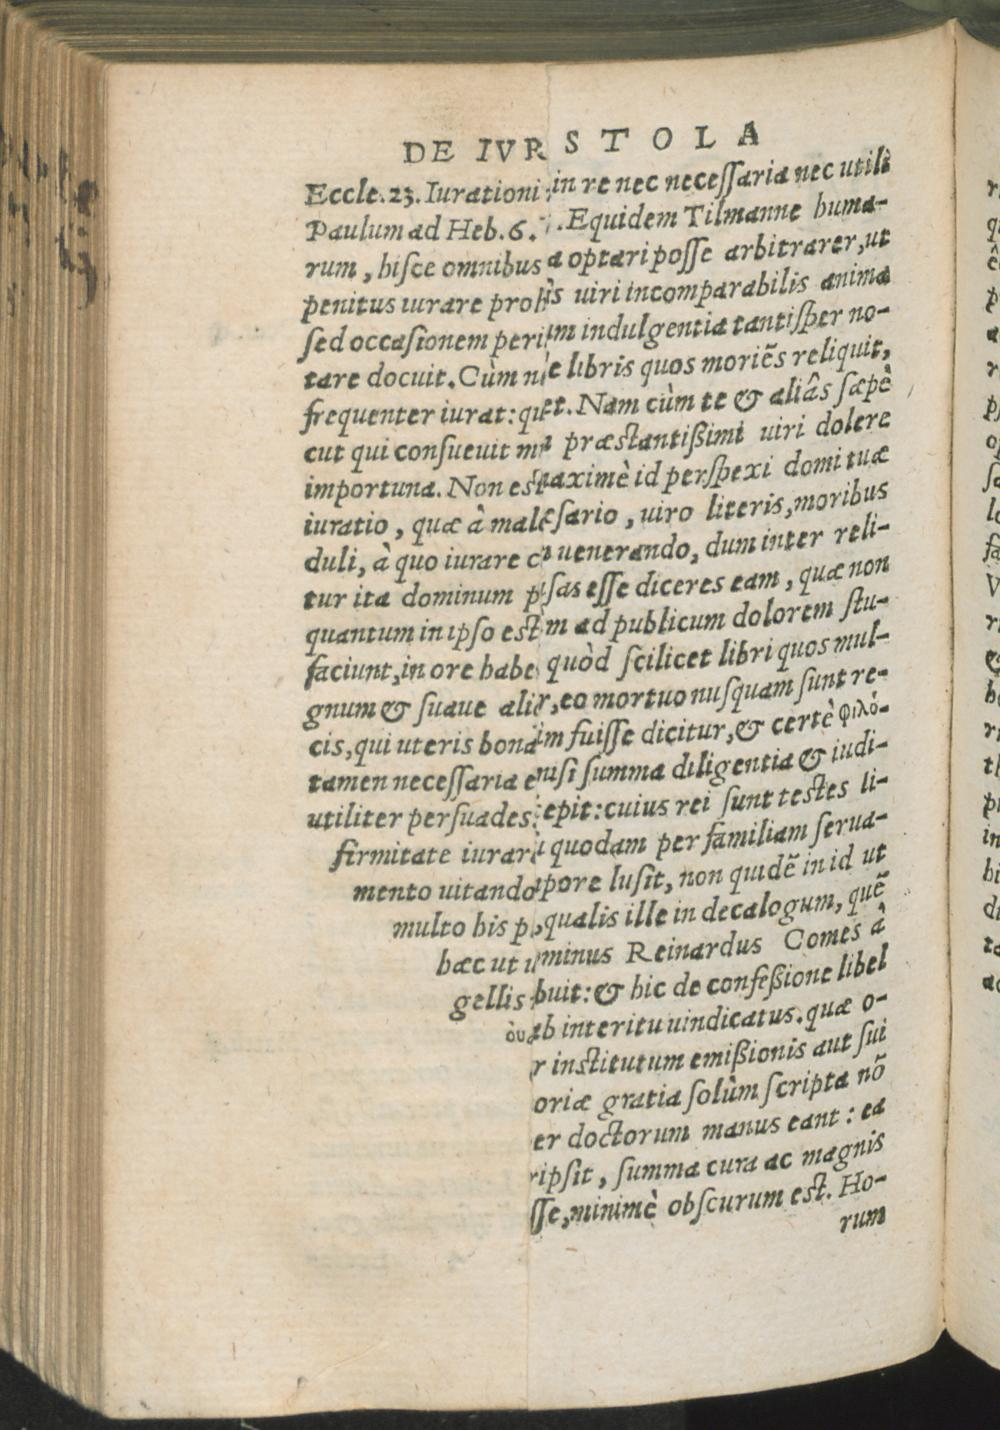 DE IVR S T O L A
Eccle. 23. Iurationi in re nec necessaria nec utili
Paulum ad Heb. 6. . Equidem Tilmanne huma-
rum, hisce omnibus a optari posse arbitrarer, ut
penitus iurare proh is uiri incomparabilis anima
sed occasionem peri um indulgentia tantisper no-
tare docuit. Cùm n e libris quos moriēs reliquit,
frequenter iurat: qu et. Nam cùm te & aliâs sæpè
cut qui consueuit m a præstantißimi uiri dolere
importuna. Non est maximè id perspexi domi tuæ
iuratio, quæ à male sario, uiro literis, moribus
duli, à quo iurare c a uenerando, dum inter reli-
tur ita dominum p sas esse diceres eam, quæ non
quantum in ipso est m ad publicum dolorem stu-
faciunt, in ore habe quòd scilicet libri quos mul-
gnum & suaue ali r, eo mortuo nusquam sunt re-
cis, qui uteris bona im fuisse dicitur, & certè φιλό-
tamen necessaria e nisi summa diligentia & iudi-
utiliter persuades: epit: cuius rei sunt testes li-
firmitate iurari quodam per familiam serua-
mento uitando pore lusit, non quidē in id ut
multo his p , qualis ille in decalogum, quē
hæc ut u minus Reinardus Comes à
gellis buit: & hic de confeßione libel
ὀυ ab interitu uindicatus. quæ o-
r institutum emißionis aut sui
oriæ gratia solùm scripta nō
er doctorum manus eant: ea
ripsit, summa cura ac magnis
sse, minimè obscurum est. Ho-
rum